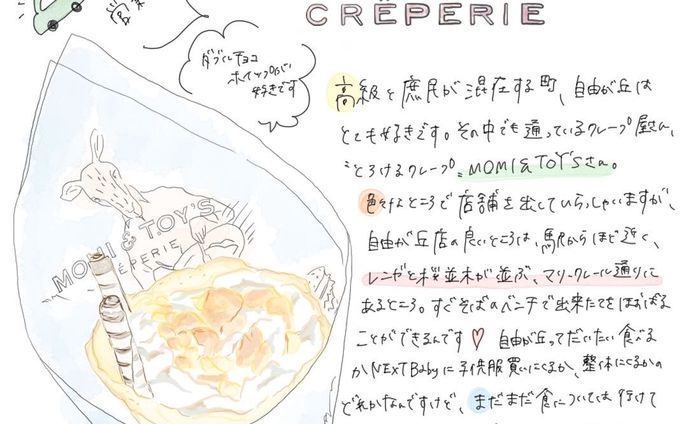 CRÊPERIE
ダブルチョコ
ホイップが
好きです
高級と庶民が混在する町、自由が丘は
とても好きです。その中でも通っているクレープ屋さん、
"とろけるクレープ"MOMI&TOY'Sさん。
色々なところで店舗を出していらっしゃいますが、
自由が丘店の良いところは、駅からほど近く、
レンガと桜並木が並ぶ、マリ・クレール通りに
あるところ。すぐそばのベンチで出来たてをほおばる
ことができるんです♡ 自由が丘ってだいたい食べる
かNEXT Babyに子供服買いにくるか、整体にくるかの
どれかなんですけど、まだまだ食については行けて
MOMI & TOY'S
CRÊPERIE